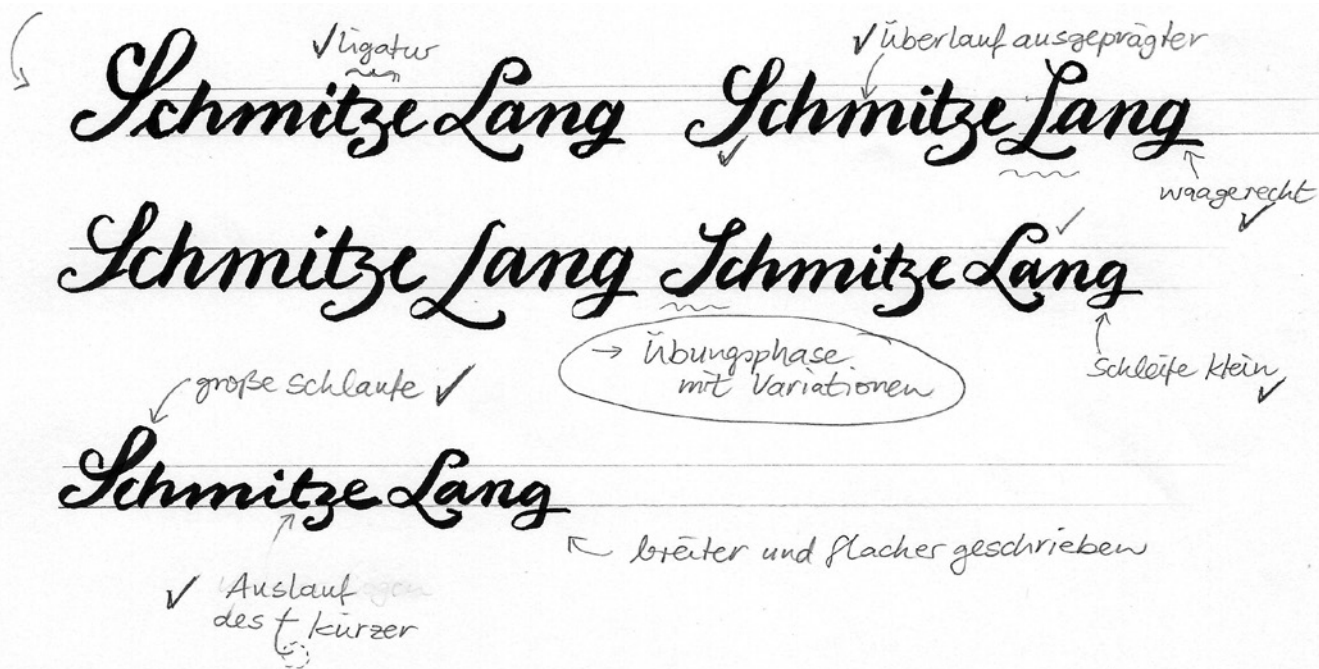 ✓ Ligatur
✓ Überlauf ausgeprägter
Schmitze Lang
Schmitze Lang
✓
waagerecht
✓
Schmitze Lang
Schmitze Lang
✓
→ Übungsphase
mit Variationen
Schleife klein
✓
große Schlaufe ✓
Schmitze Lang
breiter und flacher geschrieben
✓ Auslauf
des t kürzer